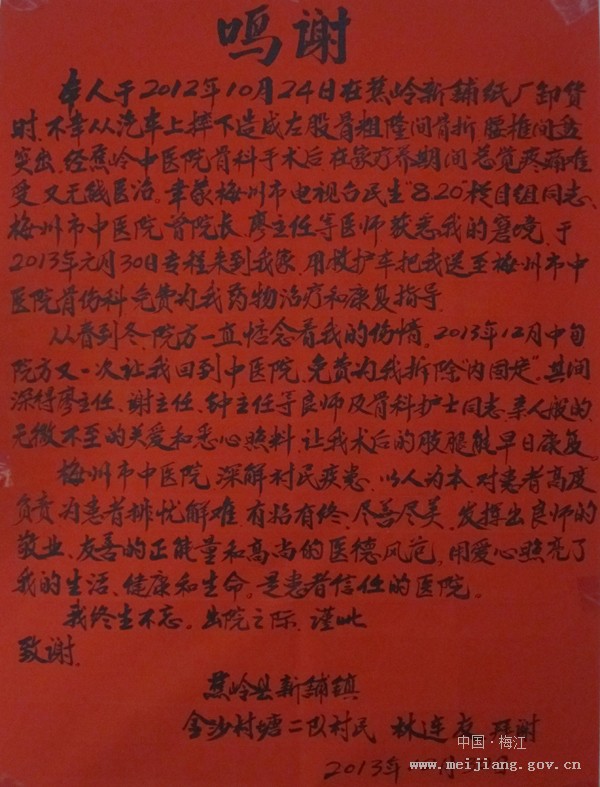 鸣谢
本人于2012年10月24日在蕉岭新铺纸厂卸货
时,不幸从汽车上摔下造成左股骨粗隆间骨折,腰椎间盘
突出,经蕉岭中医院骨科手术后,在家疗养期间总觉疼痛难
受,又无钱医治。幸蒙梅州市电视台民生"8.20"栏目组同志、
梅州市中医院曾院长、廖主任等医师获悉我的窘境,于
2013年元月30日专程来到我家,用救护车把我送至梅州市中
医院骨伤科,免费为我药物治疗和康复指导.
从春到冬,院方一直惦念着我的伤情,2013年12月中旬
院方又一次让我回到中医院,免费为我拆除"内固定",其间
深得廖主任、谢主任、钟主任等良师及骨科护士同志,亲人般的,
无微不至的关爱和悉心照料,让我术后的肢腿能早日康复。
梅州市中医院,深解村民疾患,以人为本,对患者高度
负责,为患者排忧解难,有始有终,尽善尽美,发挥出良师的
敬业、友善的正能量和高尚的医德风范,用爱心照亮了
我的生活、健康和生命。是患者信任的医院。
我终生不忘。出院之际,谨此
致谢.
蕉岭县新铺镇
金沙村塘二队村民 林连友 谢
2013年 月 日
中国·梅江
www.meijiang.gov.cn